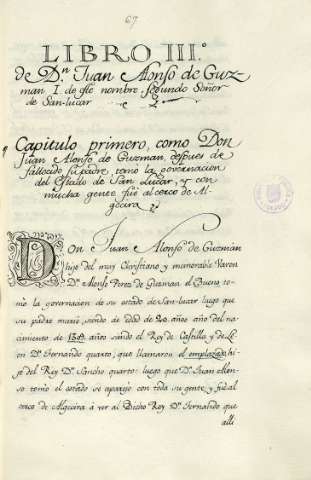 67
LIBRO III.º
de D.ⁿ Juan Alonso de Guz-
man I. de este nombre, segundo Señor
de San-lucar
Capitulo primero, como Don
Juan Alonso de Guzman, despues de
fallecido su padre, tomo la governacion
del Estado de San Lucar, y con
mucha gente fué al cerco de Al-
gecira
Don Juan Alonso de Guzmán
hijo del muy Christiano y memorable Varon
Dⁿ. Alonso Perez de Guzman el Bueno, to-
mó la governacion de su estado de San-lucar luego que
su padre murió, siendo de edad de 20 años año del na-
cimiento de años siendo el Rey de Castilla y de Le-
on Dⁿ. Fernando quarto, que llamaron el emplazado hi-
jo del Rey Dⁿ. Sancho quarto: luego que Dⁿ. Juan Alon-
so tomó el estado se aparejo con toda su gente, y fué al
cerco de Algecira á ver al Dicho Rey Dⁿ. Fernando que
alli